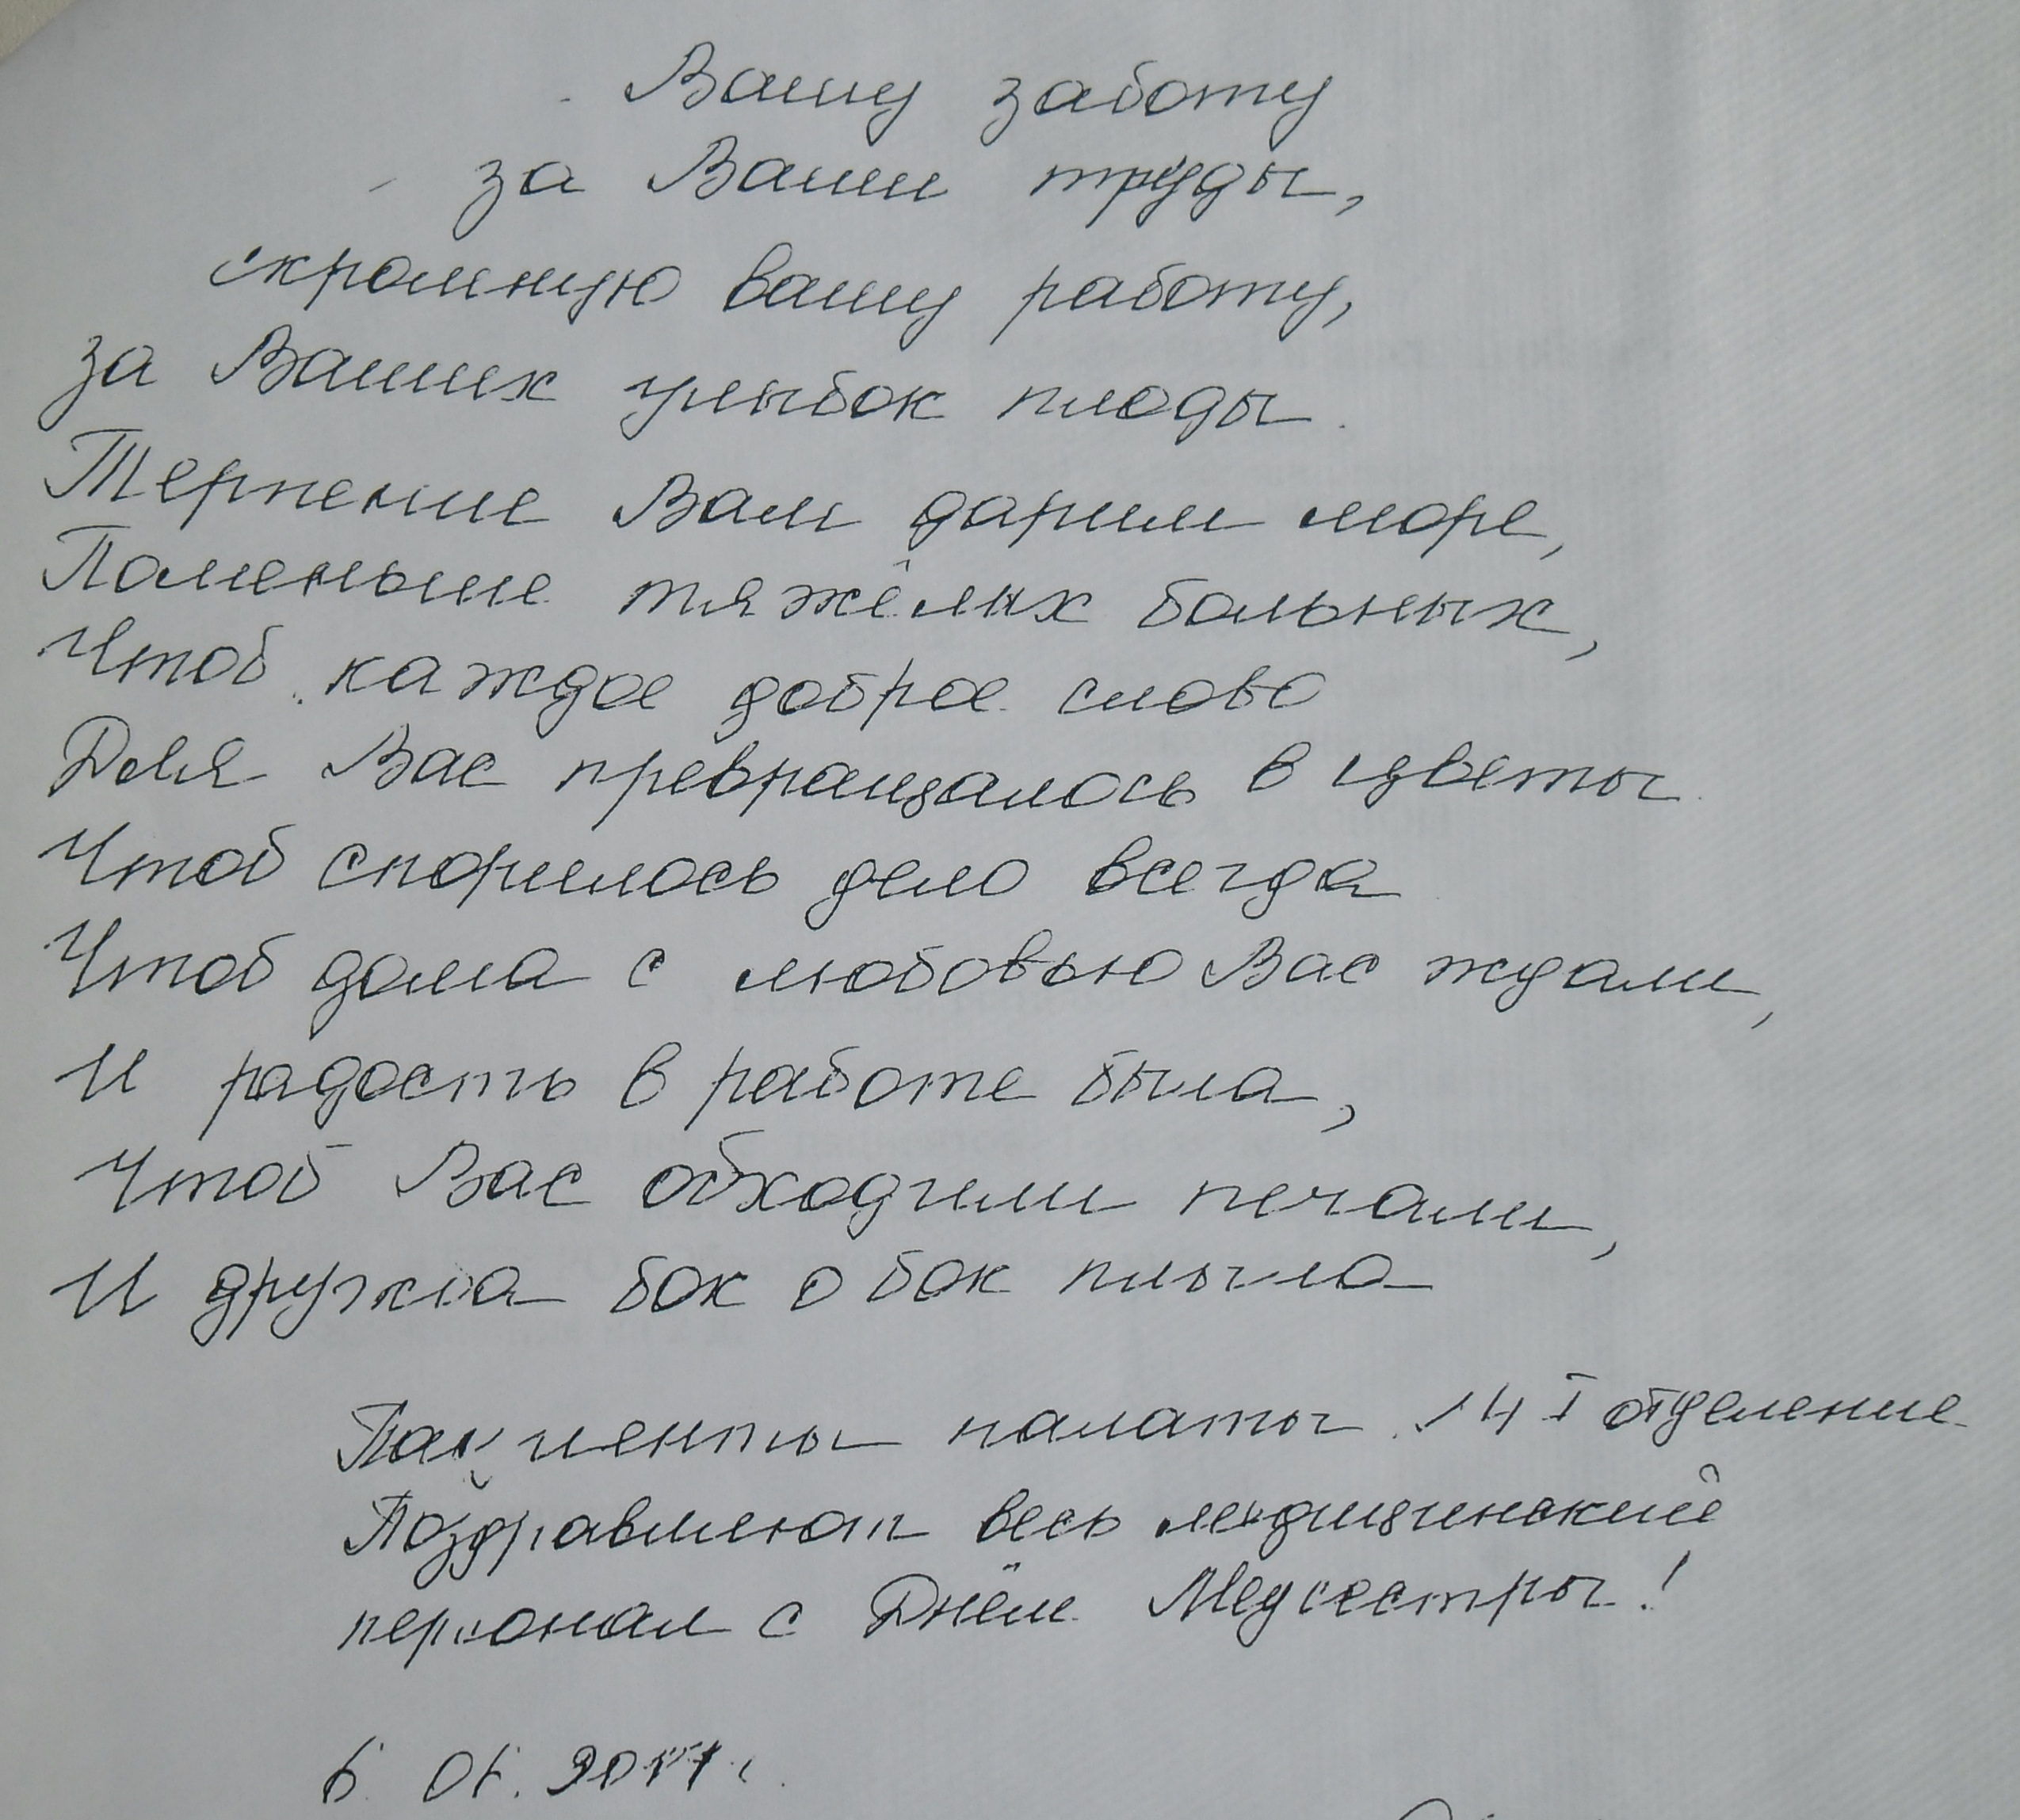 Вашу заботу
за Ваши труды,
скромную вашу работу,
за Ваших улыбок плоды.
Терпение Вам дарим море,
Поменьше тяжёлых больных,
Чтоб каждое доброе слово
Для Вас превращалось в цветы.
Чтоб спорилось дело всегда
Чтоб дома с любовью Вас ждали,
И радость в работе была,
Чтоб Вас обходили печали,
И дружба бок о бок плыла
Пациенты палаты 14 I отделение
Поздравляют весь медицинский
персонал с Днём Медсестры!